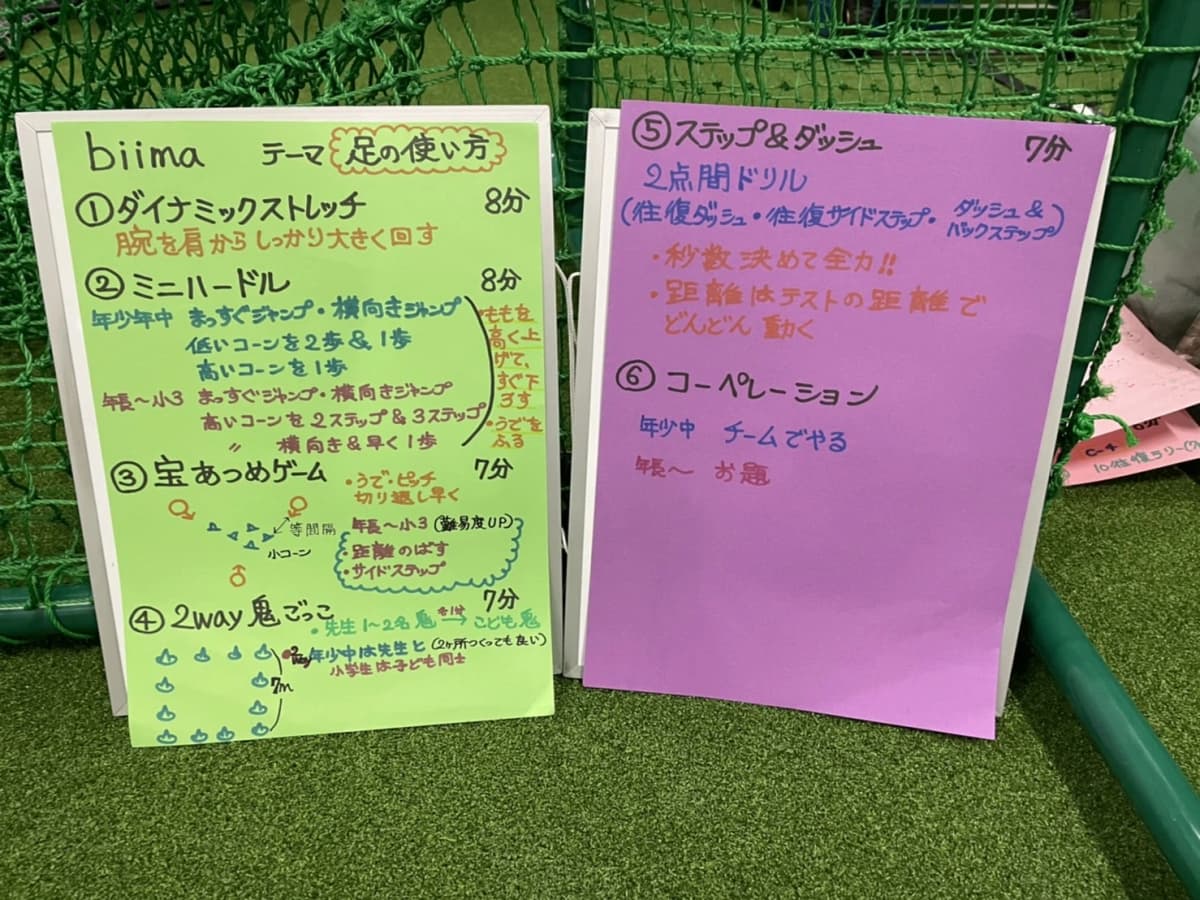 biima テーマ 足の使い方
①ダイナミックストレッチ 8分
腕を肩からしっかり大きく回す
②ミニハードル 8分
年少年中 まっすぐジャンプ・横向きジャンプ
低いコーンを2歩&1歩
高いコーンを1歩
年長〜小3 まっすぐジャンプ・横向きジャンプ
高いコーンを2ステップ&3ステップ
〃 横向き&早く1歩
・ももを
高く上
げて、
すぐ下
ろす
・うでを
ふる
③宝あつめゲーム 7分
・うで・ピッチ
切り返し早く
等間隔
小コーン
年長〜小3(難易度UP)
・距離のばす
・サイドステップ
④2way鬼ごっこ 7分
・先生1〜2名鬼 各1分→ こども鬼
・2way年少中は先生と(2ヶ所つくっても良い)
小学生は子ども同士
7m
⑤ステップ&ダッシュ 7分
2点間ドリル
(往復ダッシュ・往復サイドステップ・ダッシュ&
バックステップ)
・秒数決めて全力!!
・距離はテストの距離で
どんどん動く
⑥コーペレーション
年少中 チームでやる
年長〜 お題
10往復ラリー